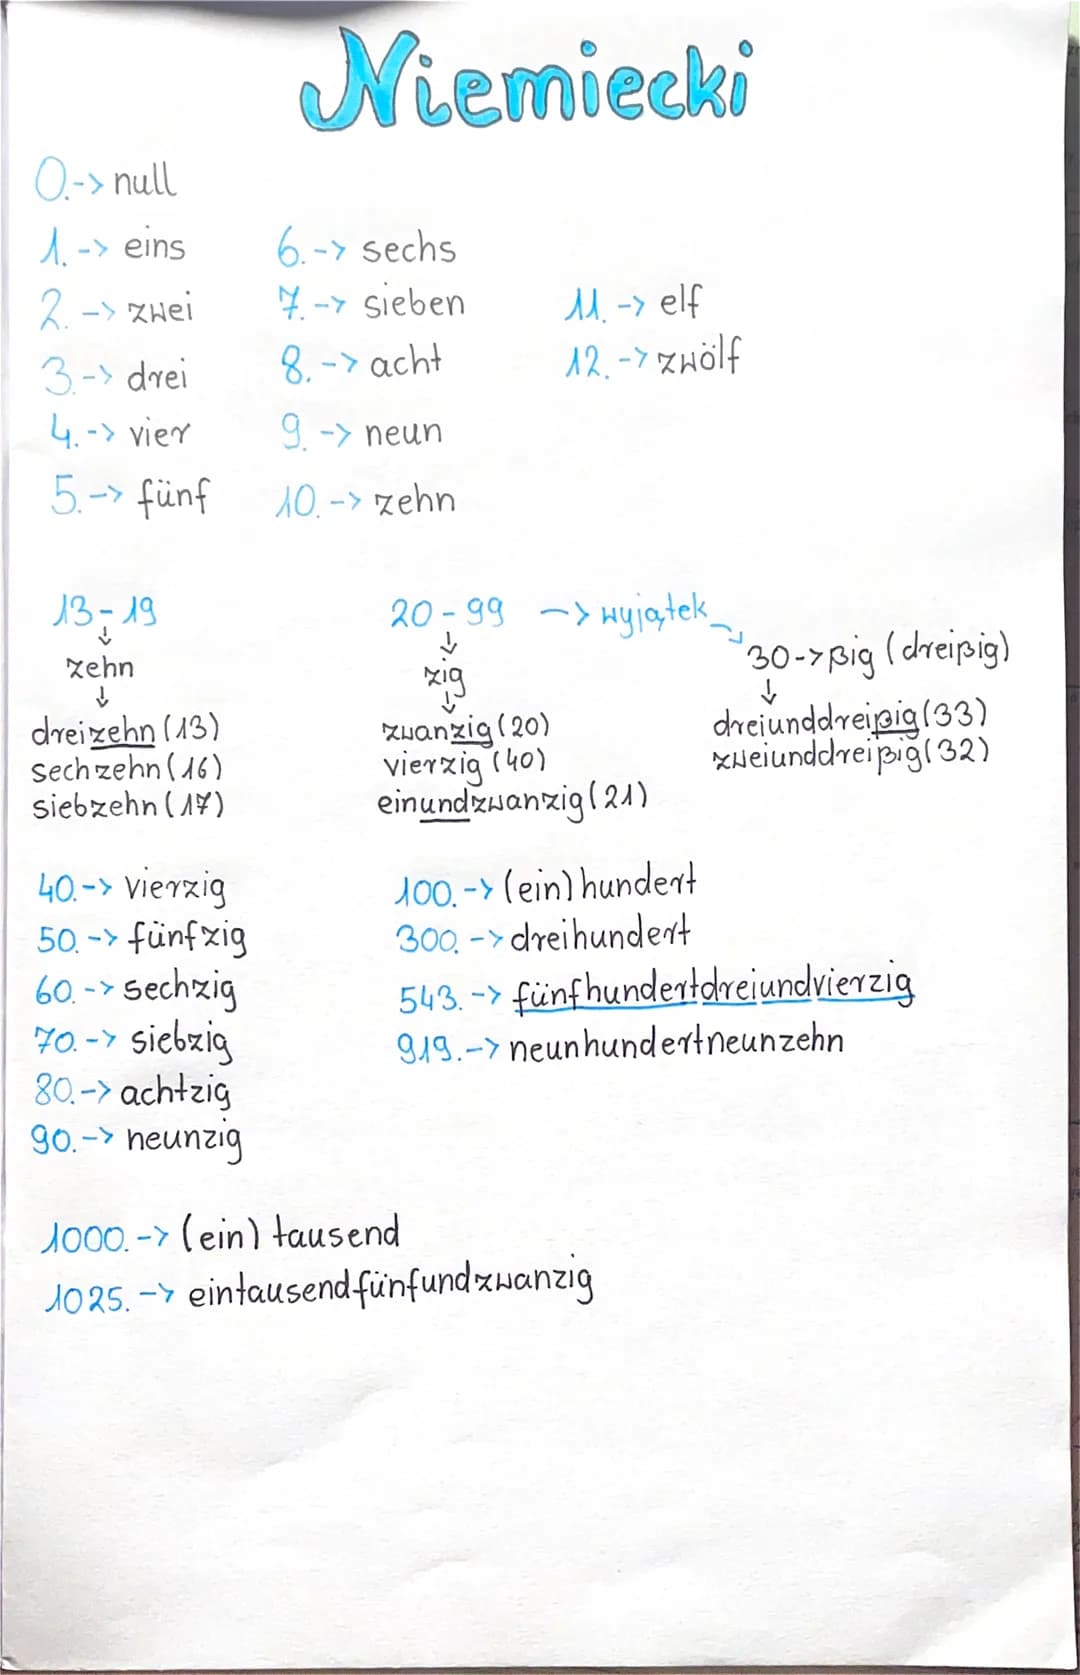 Niemiecki
0.-> null
1.-> eins
2.-> zwei
3.-> drei
4.-> vier
5.-> fünf
6.-> sechs
7.-> sieben
8.-> acht
9.-> neun
10.-> zehn
11.-> elf
12.-> zwölf
13-19
↓
zehn
↓
dreizehn (13)
sechzehn (16)
siebzehn (17)
20-99 -> wyjątek
↓
zig
↓
zwanzig (20)
vierzig (40)
einundzwanzig (21)
30->ßig (dreißig)
↓
dreiunddreißig (33)
zweiunddreißig (32)
40.-> vierzig
50.-> fünfzig
60.-> sechzig
70.-> siebzig
80.-> achtzig
90.-> neunzig
100.-> (ein) hundert
300.-> dreihundert
543.-> fünfhundertdreiundvierzig
919.-> neunhundertneunzehn
1000.-> (ein) tausend
1025.-> eintausendfünfundzwanzig